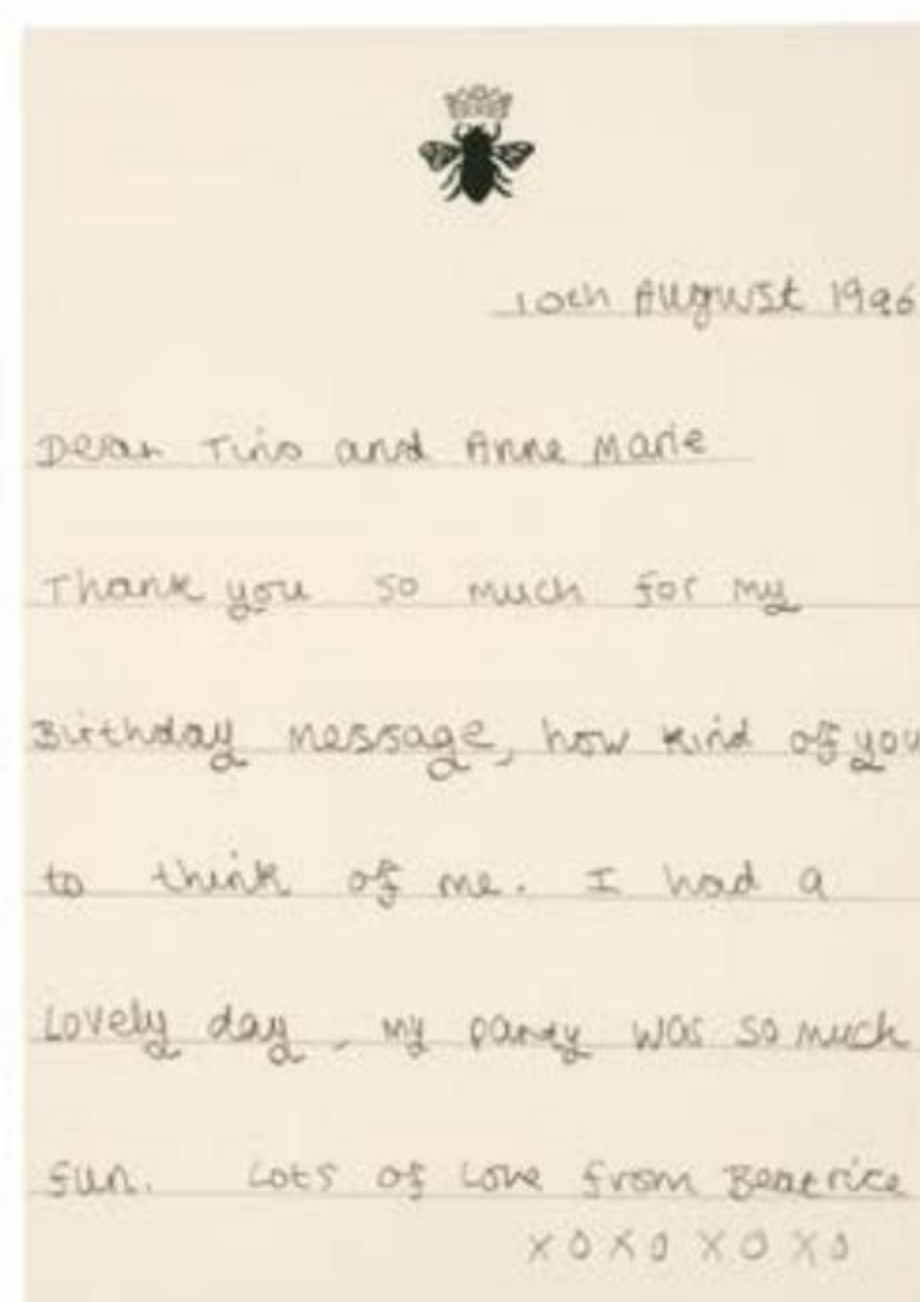 10th August 1996
Dear Tino and Anne Marie
Thank you so much for my
Birthday message, how kind of you
to think of me. I had a
Lovely day, my party was so much
fun. Lots of Love from Beatrice
XOXO XOXO